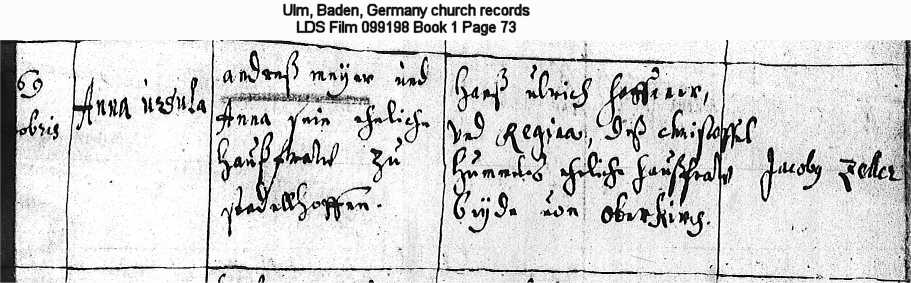 Ulm, Baden, Germany church records
LDS Film 099198 Book 1 Page 73
69
obris
Anna Ursula
andreß meyer und
Anna sein eheliche
haußfraw zu
stadelhoffen.
Hanß Ulrich
und Regina, deß christoffel
eheliche haußfraw
beyde von oberkirch.
Jacoby Zeller